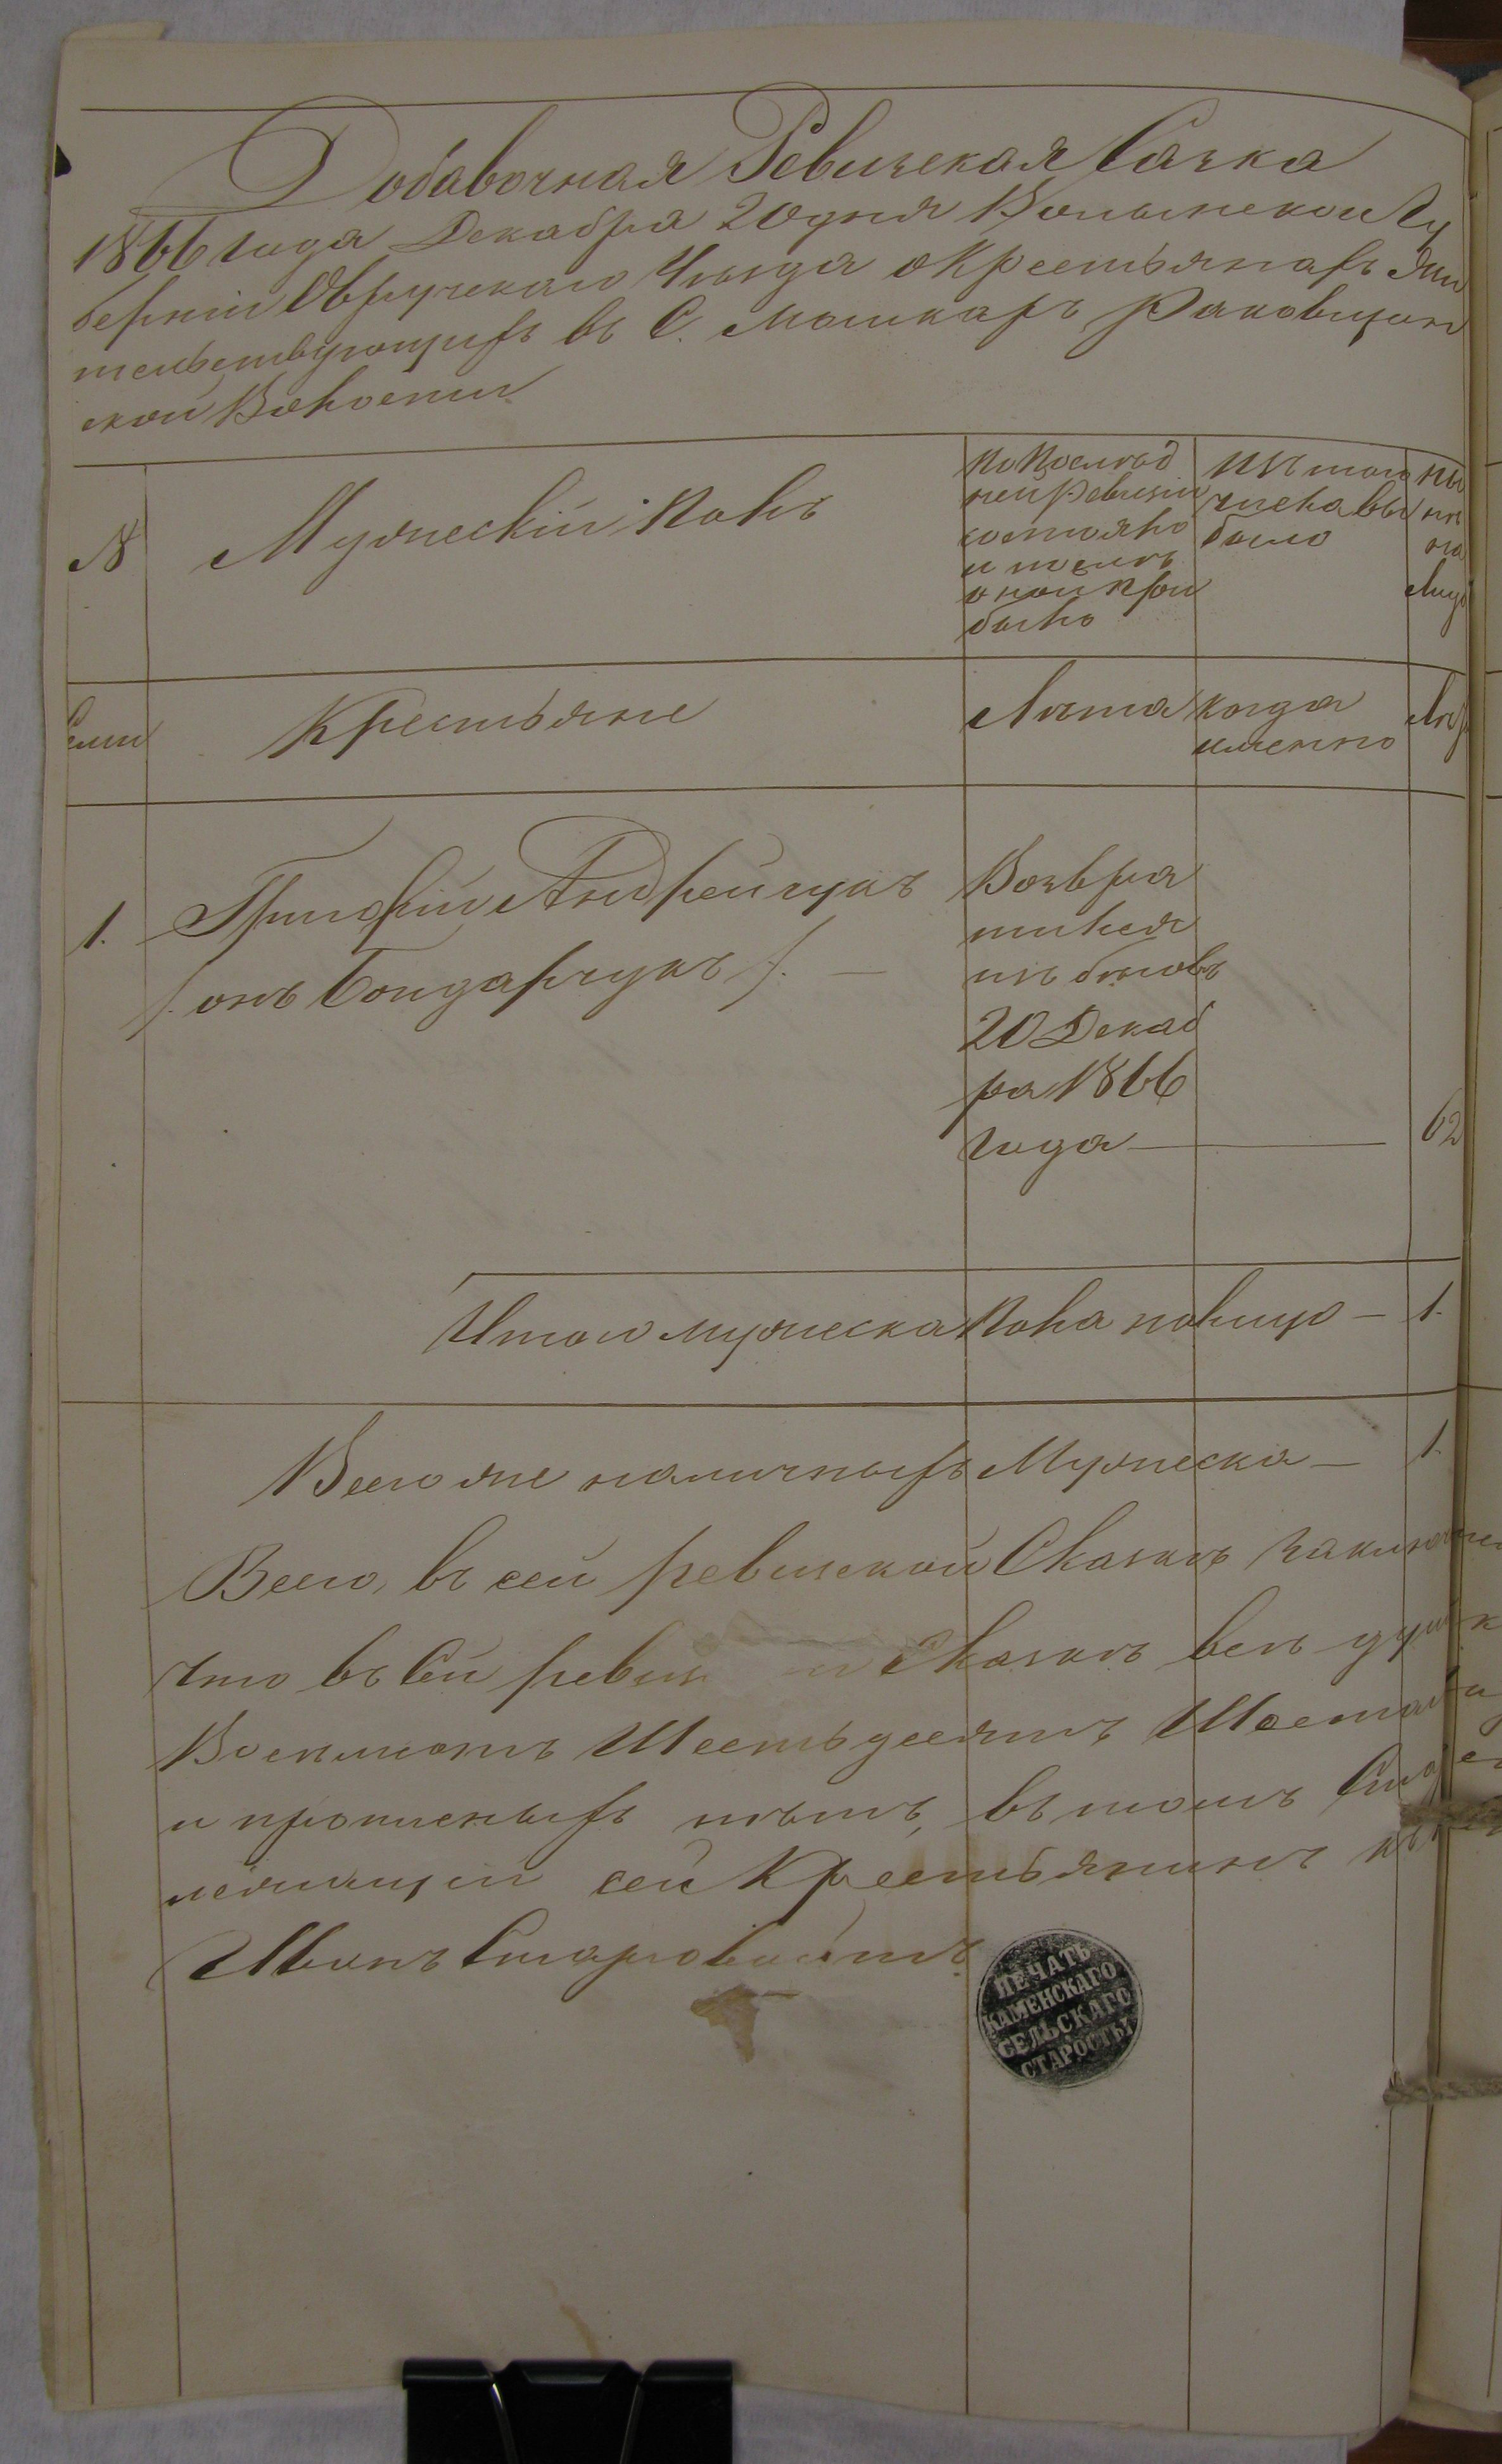 Добавочная Ревизская Сазка
1866 года Декабря 20 дня Волынской Гу
берніи Овручскаго Уѣзда о Крестьянахъ Жи
тельствующихъ въ С. Мошкахъ Раковщин
ской Волости
№
Мужескій полъ
По Послѣд
ней Ревизіи
состояло
и послѣ
оной При
было
Изъ того
числа вы
было
Ны
нѣ
на
Лицо
Семи
Крестьяне
Лѣта
когда
именно
Лѣта
1.
Григорій Андрейчукъ
/. онъ Бондарчукъ ./. —
Возвра
тился
изъ бѣговъ
20 Декаб
ра 1866
года —
62
Итого мужеска пола на лицо — 1.
Всего же наличныхъ Мужеска — 1.
Всего, въ сей ревизской Сказкѣ
что въ Сей ревиз Сказкѣ всѣ души
Восемсотъ Шестьдесятъ Шестаго
и прописныхъ нѣтъ, въ томъ
сей Крестьянинъ
Иванъ
ПЕЧАТЬ
КАМЕНСКАГО
СЕЛЬСКАГО
СТАРОСТЫ